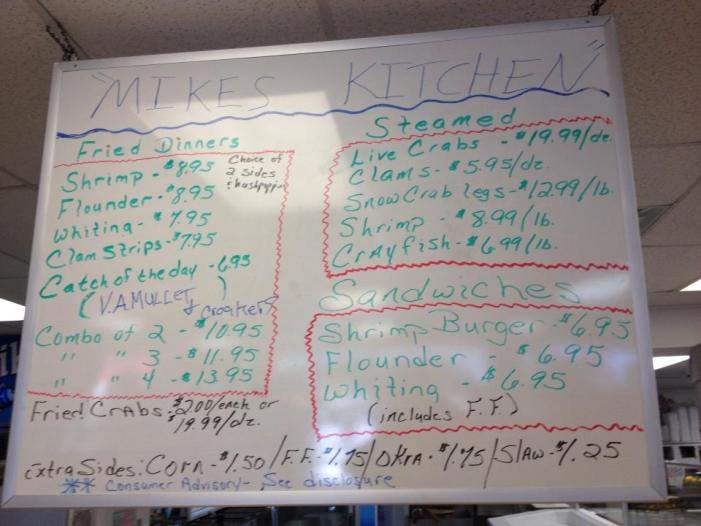 "MIKES KITCHEN"
Fried Dinners
Choice of
2 sides
& hushpuppies
Shrimp - $8.95
Flounder - $8.95
Whiting - $7.95
Clam Strips - $7.95
Catch of the day - 6.95
(V.A Mullet & Croakers)
Combo of 2 - $10.95
" " 3 - $11.95
" " 4 - $13.95
Fried Crabs - $2.00/each or
$19.99/dz.
Steamed
Live Crabs - $19.99/dz.
Clams - $5.95/dz.
Snow Crab legs - $12.99/lb.
Shrimp - $8.99/lb.
Crayfish - $6.99/lb.
Sandwiches
Shrimp Burger - $6.95
Flounder - $6.95
Whiting - $6.95
(includes F.F)
Extra Sides: Corn - $1.50/F.F. - $1.75/Okra - $1.75/Slaw - $1.25
** Consumer Advisory - See disclosure